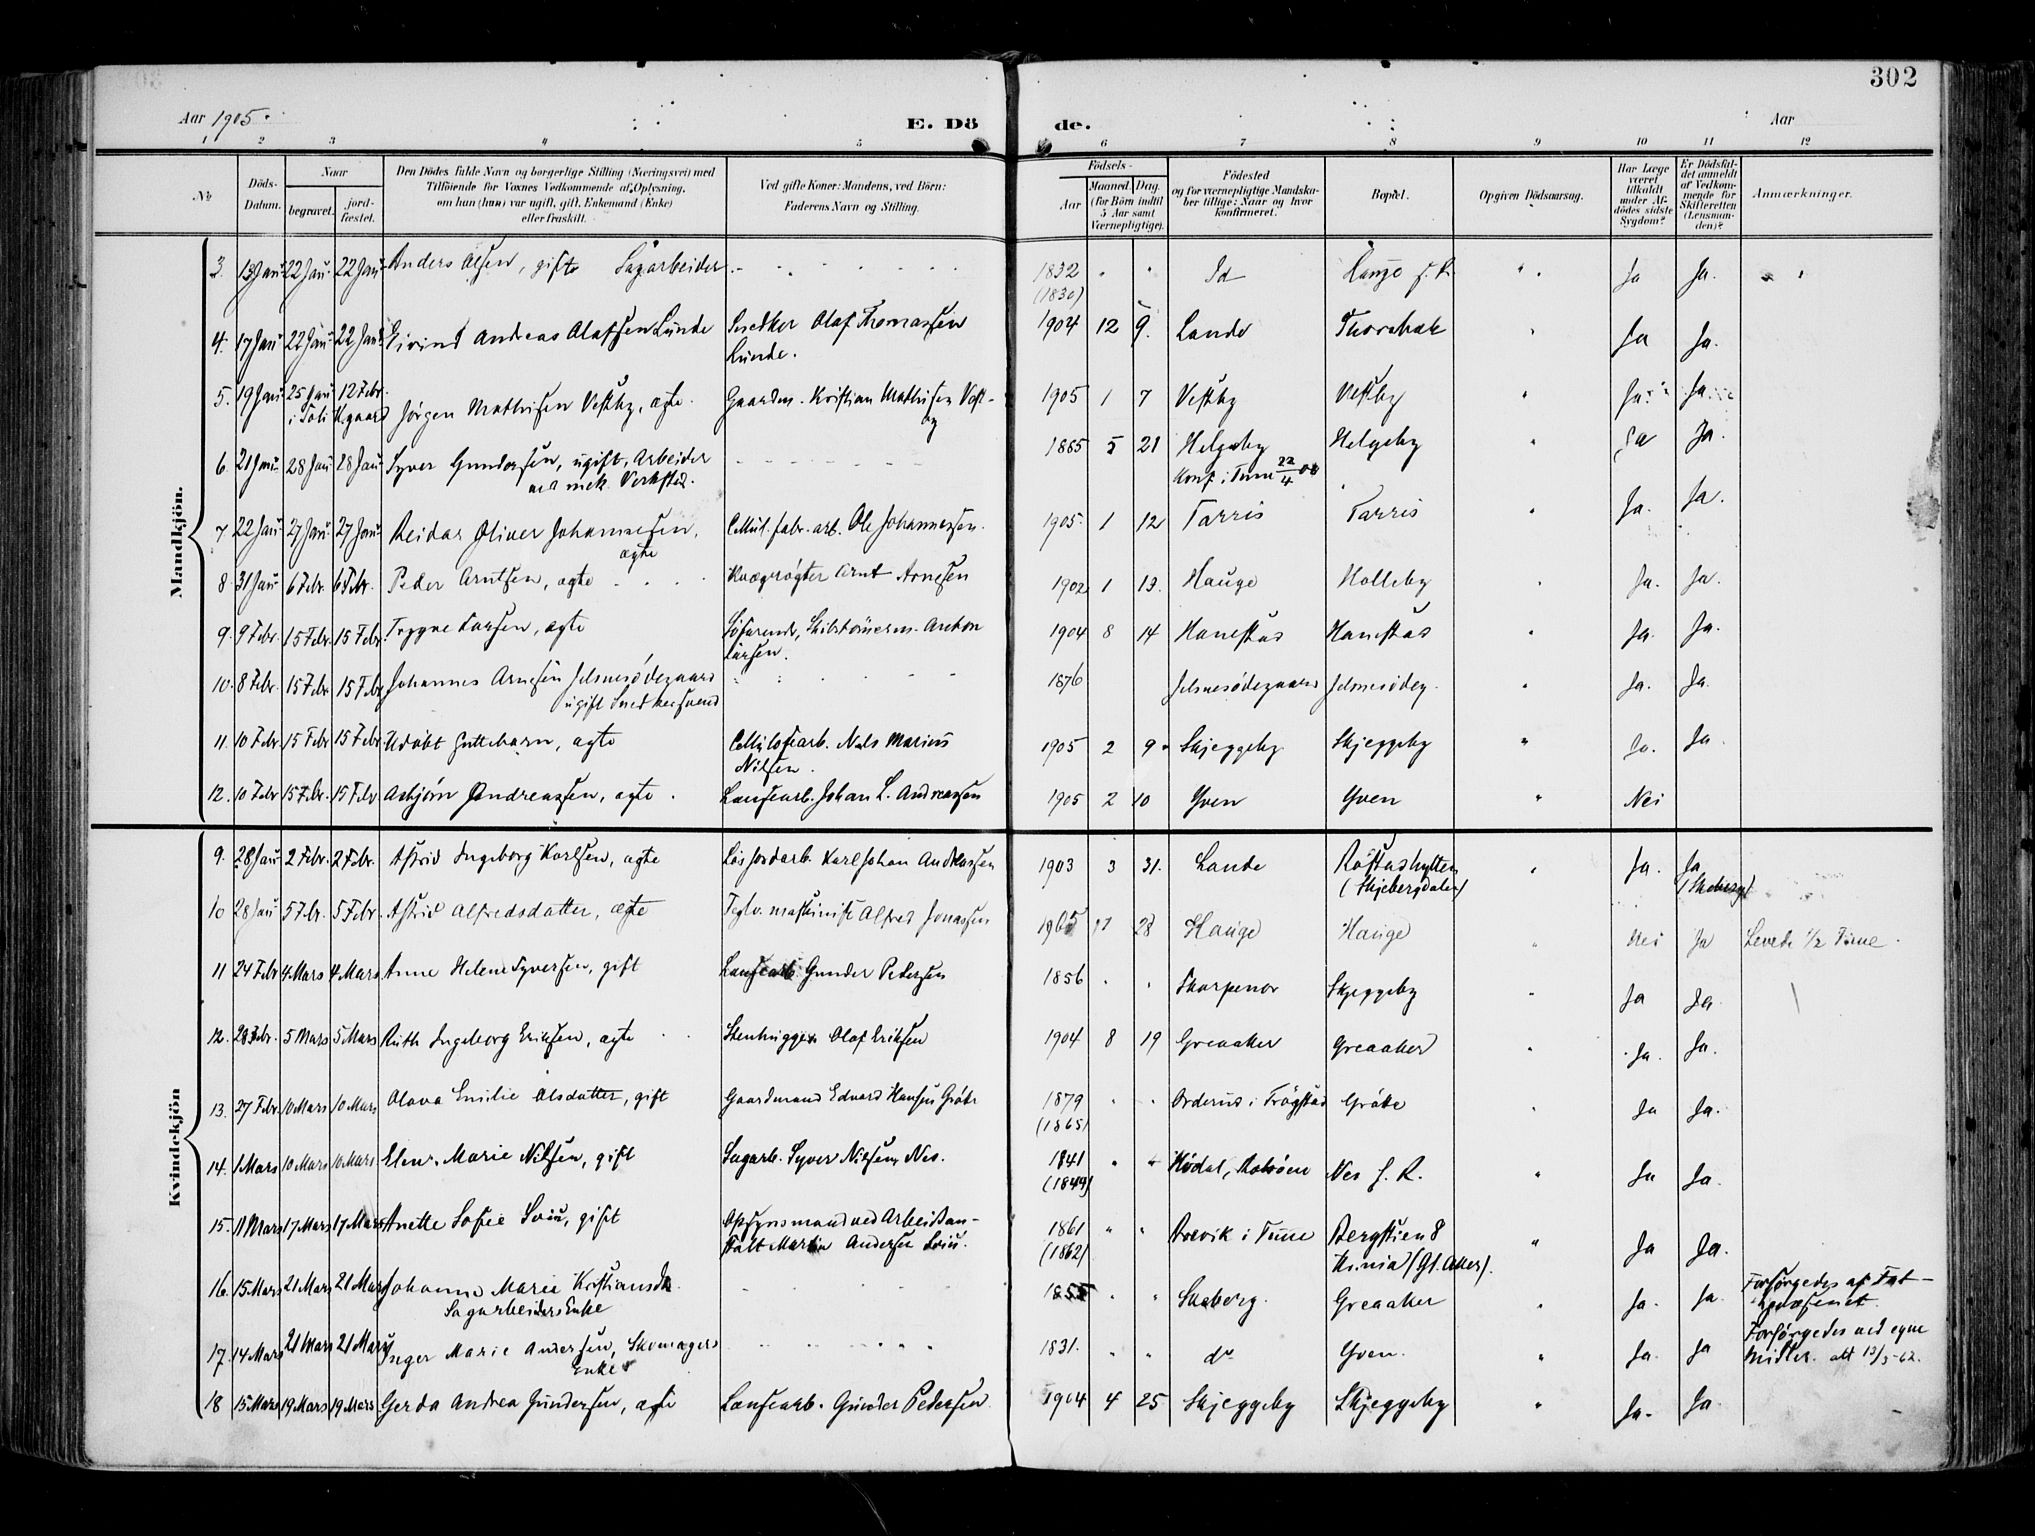 302
Aar 1905.
E. Dö de.
Aar
1 2 3 4 5 6 7 8 9 10 11 12
No
Döds-Datum.
Naar
begravet.
jord-fæstet.
Den Dödes fulde Navn og borgerlige Stilling (Næringsvei) med
Tilföiende for Voxnes Vedkommende af Oplysning,
om han (hun) var ugift, gift, Enkemand (Enke)
eller fraskilt.
Ved gifte Koner: Mandens, ved Börn:
Faderens Navn og Stilling.
Födsels-
Aar
Maaned. Dag.
(for Börn indtil
5 Aar samt
Værnepligtige).
Födested
og for værnepligtige Mandska-
ber tillige: Naar og hvor
konfirmeret.
Bopæl.
Opgiven Dödsaarsag.
Har Læge
været
tilkaldt
under Af-
dödes sidste
Sygdom?
Er Dödsfal-
det anmeldt
af Vedkom-
mende for
Skifteretten
(Lensman-
den)?
Anmærkninger.
Mandkjön.
3. 13 Jan 22 Jan. 22 Jan. Anders Olsen, gift Sagarbeider 1832 Id Hauge Ja Ja.
(1830)
4. 17 Jan 22 Jan 22 Jan Eivind Andreas Olafsen Lunde Snedker Olaf Thomassen 1904 12 9. Lande Thorsbæk Ja Ja.
Lunde.
5. 19 Jan 25 Jan 12 Febr. Jörgen Mathisen Vestby, ægte. Gaardm. Kristian Mathisen Vest- 1905 1 7 Vestby Vestby Ja Ja.
by
6. 21 Jan. 28 Jan 28 Jan Syver Gundersen, ugift, Arbeider 1885 5 21 Helgeby Helgeby Ja Ja.
ved mek. Verksted. Konf. i Tune 22/4
7 22 Jan 27 Jan. 27 Jan Reidar Oliver Johannesen, Cellul. fabr. arb. Ole Johannessen. 1905. 1 12 Tarris Tarris Ja. Ja.
ægte
8 31 Jan 6 Febr. 6 Febr. Peder Arntsen, ægte Kvægrøgter Arnt Arnesen 1902 1 13. Hauge Holleby Ja. Ja.
9. 9 Febr. 15 Febr. 15 Febr. Trygve Larsen, ægte Söfarende, Skibstömerm. Anton 1904 8 14 Hanestad Hanestad Ja. Ja.
Larsen.
10. 8 Febr. 15 Febr 15 Febr Johannes Arnesen Jelsnesödegaard 1876 Jelsnesödegaard Jelsnesödeg. Ja. Ja.
ugift Snedkersvend
11. 10 Febr 15 Febr 15 Febr Udöbt Guttebarn, ægte Cellulosearb. Nils Marius 1905 2 9. Skjeggeby Skjeggeby Ja. Ja.
Nilsen.
12. 10 Febr 15 Febr. 15 Febr Asbjörn Andreassen, ægte. Lensearb. Johan L. Andreassen 1905 2 10 Yven Yven Nei
Kvindekjön
9. 28 Jan 2 Febr. 2 Febr. Astrid Ingeborg Karlsen, ægte Løs Jordarb. Karl Johan Andreassen 1903 3 31. Lande Röstadhytten Ja. Ja
(Skjebergdalen) (Skeberg)
10 28 Jan 5 Febr. 5 Febr. Astrid Alfredsdatter, ægte Teglv. maskinist Alfred Jonassen 1905 1 28 Hauge Hauge Nei Ja Levede 1/2 Time.
11 24 Febr 4 Mars 4 Mars Anne Helene Syversen, gift Lensearb. Gunder Pedersen 1856 Thorpenor Skjeggeby Ja Ja.
12. 28 Febr. 5 Mars 5 Mars Ruth Ingeborg Eriksen, ægte Stenhugger Olaf Eriksen 1904 8 19 Greaaker Greaaker Ja. Ja.
13. 27 Febr 10 Mars 10 Mars Olava Emilie Olsdatter, gift Gaardmand Edvard Hansen Gröte 1879 Orderud i Trögstad Gröte Ja Ja.
(1865)
14. 1 Mars 10 Mars 10 Mars Elen Marie Nilsen, gift Sagarb. Syver Nilsen, Nes. 1841 Hödal, Rolsöen Nes f. R. Ja Ja.
(1849)
15. 11 Mars 17 Mars 17 Mars Anette Sofie Lviu, gift Opsynsmand ved Arbeidsan- 1861 Brevik i Tune Bergstien 8 Ja Ja.
stalt Martin Andersen (1862) Kr.nia (Gl. Aker).
16. 15 Mars 21 Mars 21 Mars Johanne Marie Kristiansd. 1855 Skeberg. Greaaker Ja. Ja. Forsörgedes af Fat-
Sagarbeiders Enke tigvæsenet.
17. 14 Mars 21 Mars 21 Mars Inger Marie Andersen, Skomagers 1831. do Yven. Ja. Ja Forsörgedes ved egne
Enke Midler. att 13/5-62.
18 15 Mars 19 Mars 19 Mars Gerda Andrea Gundersen, ægte Lensearb. Gunder Pedersen. 1904 4 25 Skjeggeby Skjeggeby Ja. Ja.